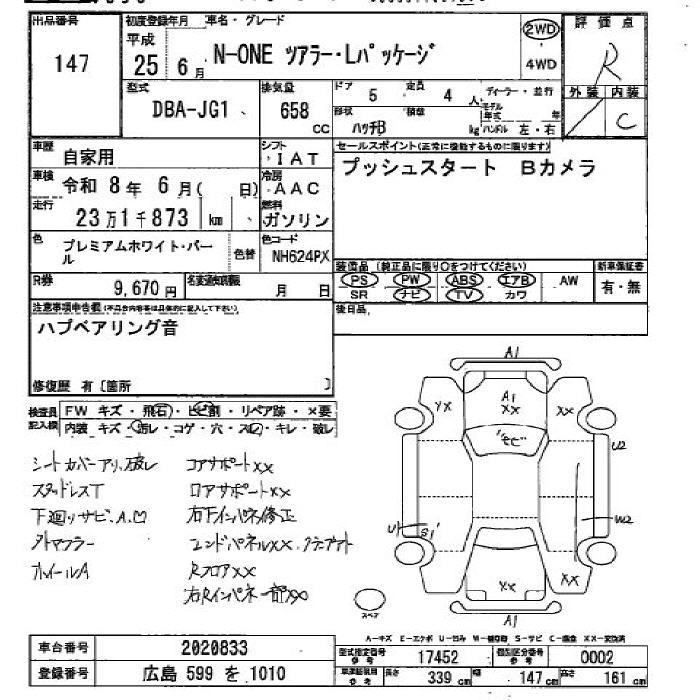 出品番号 147
初度登録年月 平成 25年 6月
車名・グレード N-ONE ツアラー・Lパッケージ
2WD
4WD
評価点 R
外装 内装 C
型式 DBA-JG1
排気量 658 CC
ドア 5 定員 4 人
形状 ハッチB 積載 kg
ディーラー・並行
モデル年式 年
ハンドル 左・右
車歴 自家用
シフト IAT
車検 令和 8年 6月( 日)
冷房 AAC
走行 23万1千873 km
燃料 ガソリン
色 プレミアムホワイト・パール
色替
色コード NH624PX
R券 9,670円
名変通知期限 月 日
セールスポイント(正常に機能するものに限ります)
プッシュスタート Bカメラ
装備品 (純正品に限り○をつけてください)
PS PW ABS エアB AW
SR ナビ TV カワ
新車保証書 有・無
後日品
注意事項申告欄(不具合内容等は具体的に記入して下さい)
ハブベアリング音
修復歴 有〔箇所 〕
検査員記入欄
FW キズ・飛石・ヒビ割・リペア跡・×要
内装 キズ・汚レ・コゲ・穴・スレ・キレ・破レ
シートカバーアリ、破レ
スタッドレスT
下廻りサビ、A、凹
外マフラー
ホイールA
コアサポートXX
ロアサポートXX
右下インパネ修正
エンドパネルXX
RフロアXX
右Rインパネ一部XX
A1
A1
XX
XX
XX
モヒ
U2
W2
U1
S1
XX
XX
A1
スペア
A-キズ E-エクボ U-凹み W-補修跡 S-サビ C-腐食 XX-交換済
車台番号 2020833
登録番号 広島 599 を 1010
型式指定番号 参考 17452
類別区分番号 参考 0002
車庫証明用 参考 長さ 339 cm 幅 147 cm 高さ 161 cm